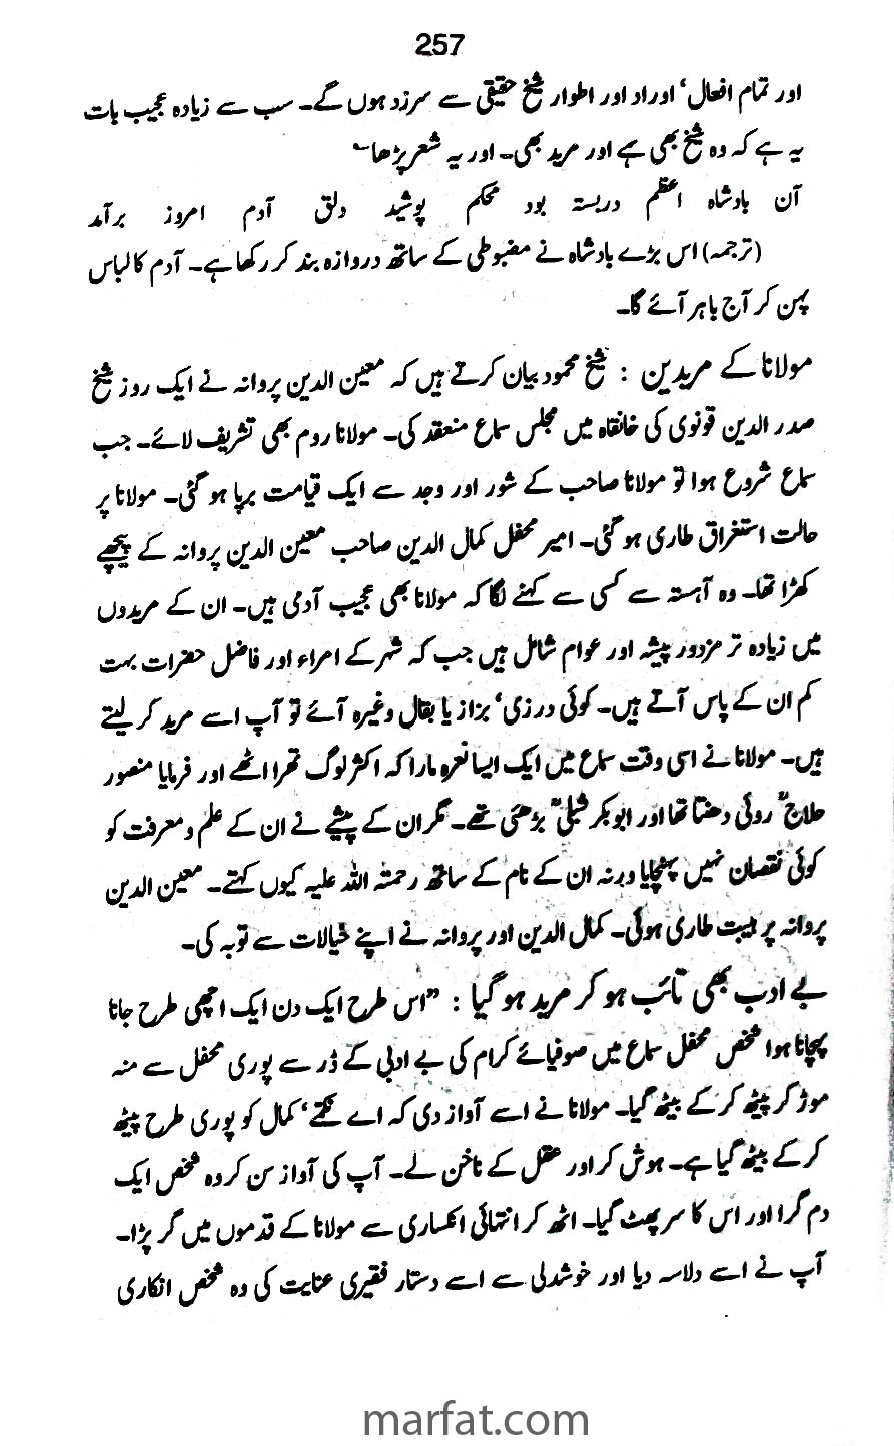 257
اور تمام افعال، اوراد اور اطوار شیخ حقیقی سے سرزد ہوں گے۔ سب سے زیادہ عجیب بات
یہ ہے کہ وہ شیخ بھی ہے اور مرید بھی۔ اور یہ شعر پڑھا؂
آن بادشاہ اعظم دربستہ بود محکم پوشید دلق آدم امروز برآمد
(ترجمہ) اس بڑے بادشاہ نے مضبوطی کے ساتھ دروازہ بند کر رکھا ہے۔ آدم کا لباس
پہن کر آج باہر آئے گا۔
مولانا کے مریدین : شیخ محمود بیان کرتے ہیں کہ معین الدین پروانہ نے ایک روز شیخ
صدر الدین قونوی کی خانقاہ میں مجلس سماع منعقد کی۔ مولانا روم بھی تشریف لائے۔ جب
سماع شروع ہوا تو مولانا صاحب کے شور اور وجد سے ایک قیامت برپا ہو گئی۔ مولانا پر
حالت استغراق طاری ہو گئی۔ امیر محفل کمال الدین صاحب معین الدین پروانہ کے پیچھے
کھڑا تھا۔ وہ آہستہ سے کسی سے کہنے لگا کہ مولانا بھی عجیب آدمی ہیں۔ ان کے مریدوں
میں زیادہ تر مزدور پیشہ اور عوام شامل ہیں جب کہ شہر کے امراء اور فاضل حضرات بہت
کم ان کے پاس آتے ہیں۔ کوئی درزی، بزاز یا بقال وغیرہ آئے تو آپ اسے مرید کر لیتے
ہیں۔ مولانا نے اسی وقت سماع میں ایک ایسا نعرہ مارا کہ اکثر لوگ تھرا اٹھے اور فرمایا منصور
حلاجؒ روئی دھنتا تھا اور ابوبکر شبلیؒ بڑھئی تھے۔ مگر ان کے پیشے نے ان کے علم و معرفت کو
کوئی نقصان نہیں پہنچایا ورنہ ان کے نام کے ساتھ رحمتہ اللہ علیہ کیوں کہتے۔ معین الدین
پروانہ پر ہیبت طاری ہوئی۔ کمال الدین اور پروانہ نے اپنے خیالات سے توبہ کی۔
بے ادب بھی تائب ہو کر مرید ہو گیا : "اس طرح ایک دن ایک اچھی طرح جانا
پہچانا ہوا شخص محفل سماع میں صوفیائے کرام کی بے ادبی کے ڈر سے پوری محفل سے منہ
موڑ کر پیٹھ کر کے بیٹھ گیا۔ مولانا نے اسے آواز دی کہ اے نکتے، کمال کو پوری طرح پیٹھ
کر کے بیٹھ گیا ہے۔ ہوش کر اور عقل کے ناخن لے۔ آپ کی آواز سن کر وہ شخص ایک
دم گرا اور اس کا سر پھٹ گیا۔ اٹھ کر انتہائی انکساری سے مولانا کے قدموں میں گر پڑا۔
آپ نے اسے دلاسہ دیا اور خوشدلی سے اسے دستار فقیری عنایت کی وہ شخص انکاری
marfat.com